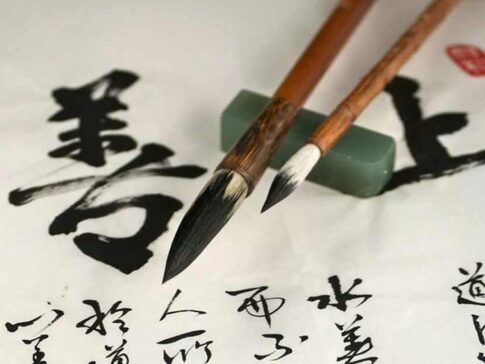 上善
道
水善
而不
人所
於道
以